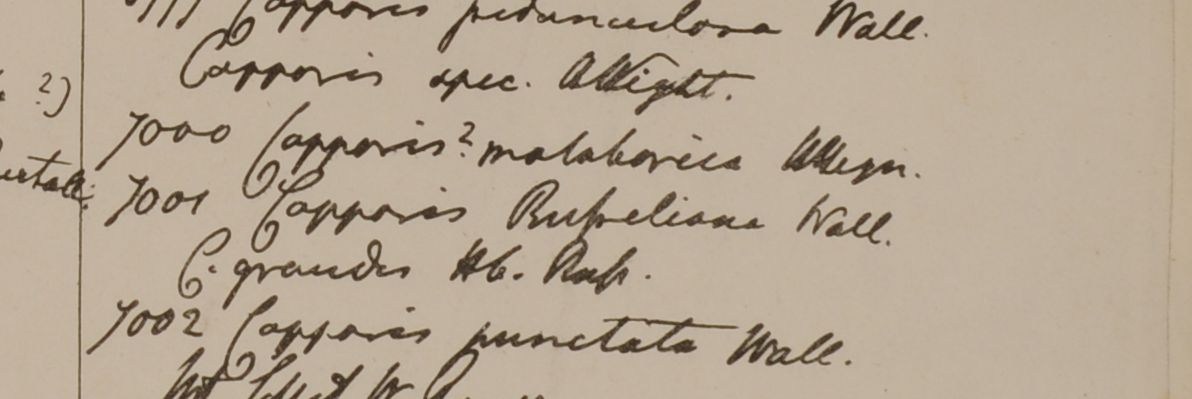 Capparis pedunculosa Wall.
Capparis spec. Wight.
? )
7000 Capparis? malabarica
7001 Capparis Russeliana Wall.
C. grandis Hb. Russ.
7002 Capparis punctata Wall.